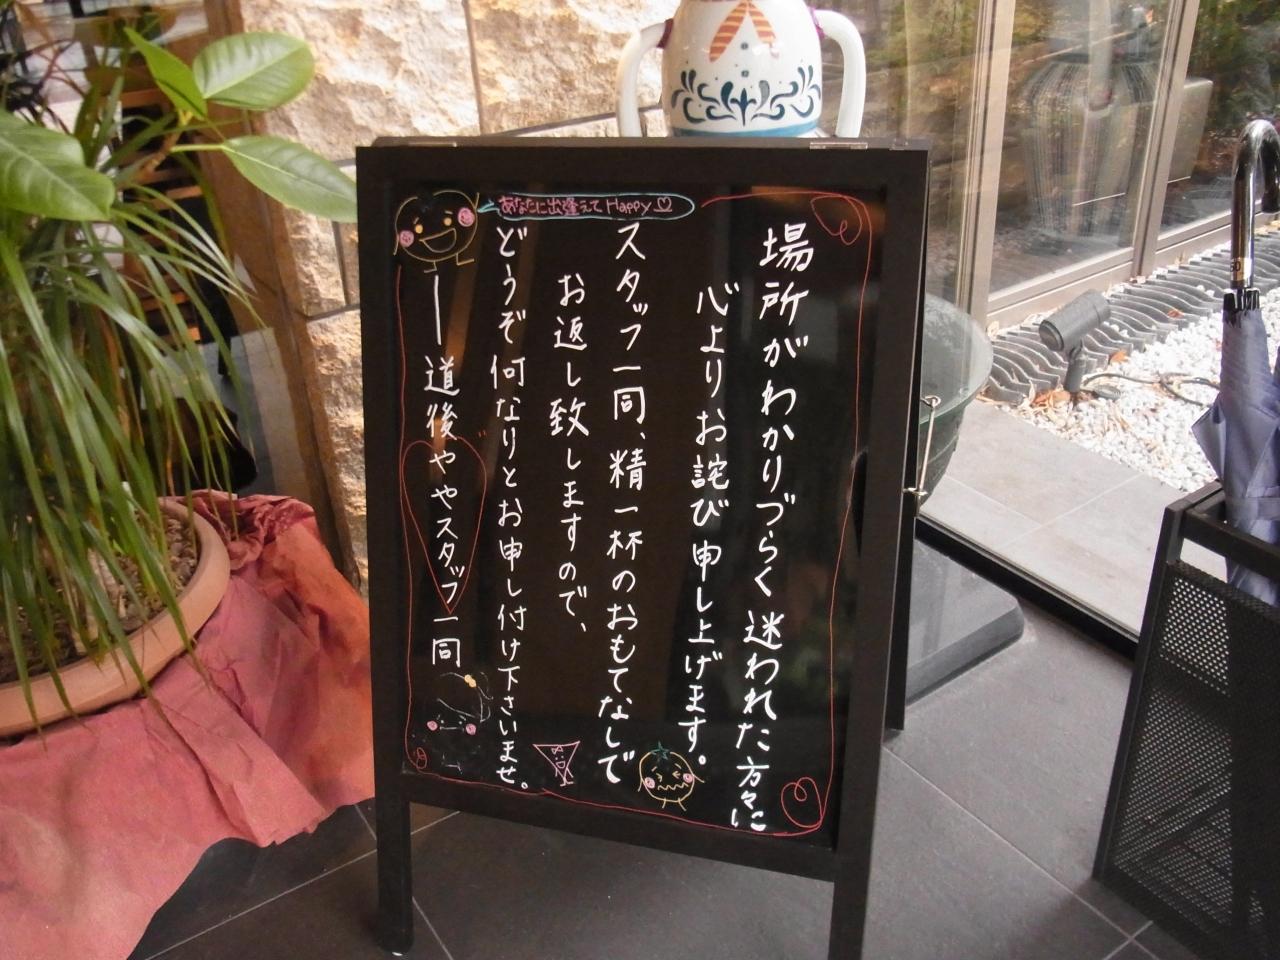 場所がわかりづらく迷われた方々に
心よりお詫び申し上げます。
スタッフ一同、精一杯のおもてなしで
お返し致しますので、
どうぞ何なりとお申し付け下さいませ。
―道後ややスタッフ一同
あなたに出逢えてHappy♡